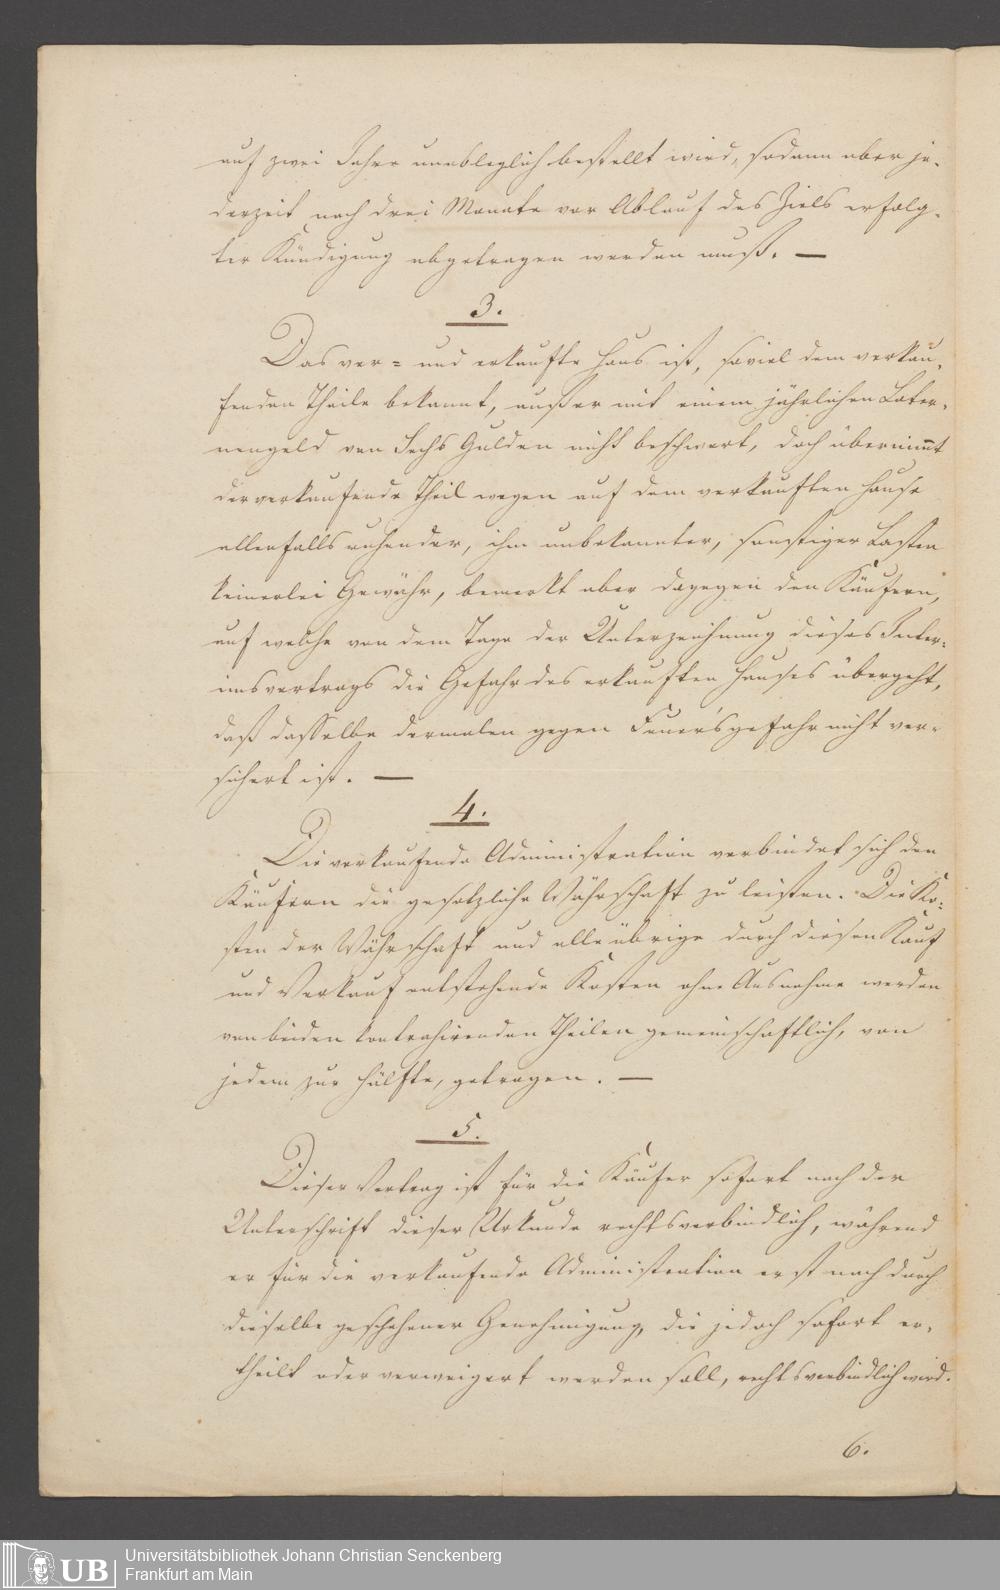 auf zwei Jahre unableglich bestellt wird, sodann aber je-
derzeit nach drei Monate vor Ablauf des Ziels erfolg-
ter Kündigung abgetragen werden muß. —
3.
Das ver= und erkaufte Haus ist, soviel dem verkau-
fenden Theile bekannt, außer mit einem jährlichen Later-
nengeld von Sechs Gulden nicht beschwert, doch übernimmt
der verkaufende Theil wegen auf dem verkauften Hause
allenfalls ruhender, ihm unbekannter, sonstiger Lasten
keinerlei Gewähr, bemerkt aber dagegen den Käufern,
auf welche von dem Tage der Unterzeichnung dieses Inter-
imsvertrags die Gefahr des erkauften Hauses übergeht,
daß dasselbe dermalen gegen Feuersgefahr nicht ver-
sichert ist. —
4.
Die verkaufende Administration verbindet sich den
Käufern die gesetzliche Währschaft zu leisten. Die Ko-
sten der Währschaft und alle übrige durch diesen Kauf
und Verkauf entstehende Kosten ohne Ausnahme werden
von beiden contrahirenden Theilen gemeinschaftlich, von
jedem zur Hälfte, getragen. —
5.
Dieser Vertrag ist für die Käufer sofort nach der
Unterschrift dieser Urkunde rechtsverbindlich, während
er für die verkaufende Administration erst nach durch
dieselbe geschehener Genehmigung, die jedoch sofort er-
theilt oder verweigert werden soll, rechtsverbindlich wird.
6.
UB
Universitätsbibliothek Johann Christian Senckenberg
Frankfurt am Main